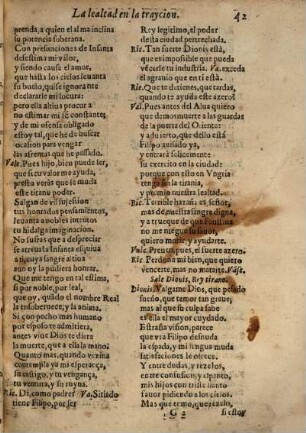 La lealtad en la traycion. 42
prenda, a quien el alma inclina
su potencia soberana.
Con presunciones de Infanta
desestima mi valor,
y siendo causa el amor,
que hasta los cielos levanta
su buelo, quiso ignorante
declararle mi locura:
pero ella altiva procur a
no estimar mi fè constante;
y de mi ofensa obligado
estoy tal, que he de buscar
ocasion para vengar
las afrentas que he passado.
Vale. Pues hijo, bien puede ser,
que su valor me ayuda,
presto veràs que te muda
este tirano poder.
Salgan de vil sujesion
tus honrados pensamientos,
levanta a nobles intentos
tu hidalga imaginacion.
No sufras que a despreciar
se atreva la Infanta esquiva
a tu cuya sangre altiva
aun oy la pudiera honrar.
Que me tengo en tal estima,
si por noble, por leal,
que oy, quando el nombre Real
Si con pecho mas humano
por esposo te admitiera,
antes vive Dios te diera
la muerte, que a ella la mano?
Quanto mas, quando
compra ya mi esperança,
su castigo, y tu vengança,
tu ventura, y su rayna.
Ric. Di, como podrè? Va. Sitiado
tiene Filipo, por ser
Rey legitimo, el poder
desta ciudad pertrechada.
Ric. Tan fuerte Dionis està,
que es impossible que pueda
vēcerle tu industria. Va. exceda
el agravio que en ti està.
Ric. Que te detienes, que tardas,
quando te ayuda este azero?
Val. Pues antes del Alva quiero
que damos muerte a las guardas
de la puerta del Oriente:
y advierto, que dello està
Filipo avisado ya,
y entrarà felicemente
su exercito en la ciudad:
porque con esto en Vngria
tenga fin la tirania,
y premio nuestra lealtad.
Ric. Terrible hazaña es señor,
mas de nuestra sangre digna,
y a trueque de que
no me niegue su amor,
quiero morir, y ayudarte.
Vale. Presto, pues, el fuerte azero.
Ric. Perdona mi bien, que quiero
vencerte, mas no matarte. Vase.
Sale Dionis, Rey tirano.
Dionis. Valgame Dios, que podido
sueño, que temor tan grave;
mas al que su culpa sabe
es ella el mayor cuydado.
Estraña vision, parece
que via Filipo desnuda
la espada, y mi lengua muda
satisfaciones le ofrece.
Y entre dudas, y rezelos,
entre confusion, y espanto,
mis hijos con triste llanto
estàn pidiendo a los cielos.
Mas que temo, que
G 2 si estoy